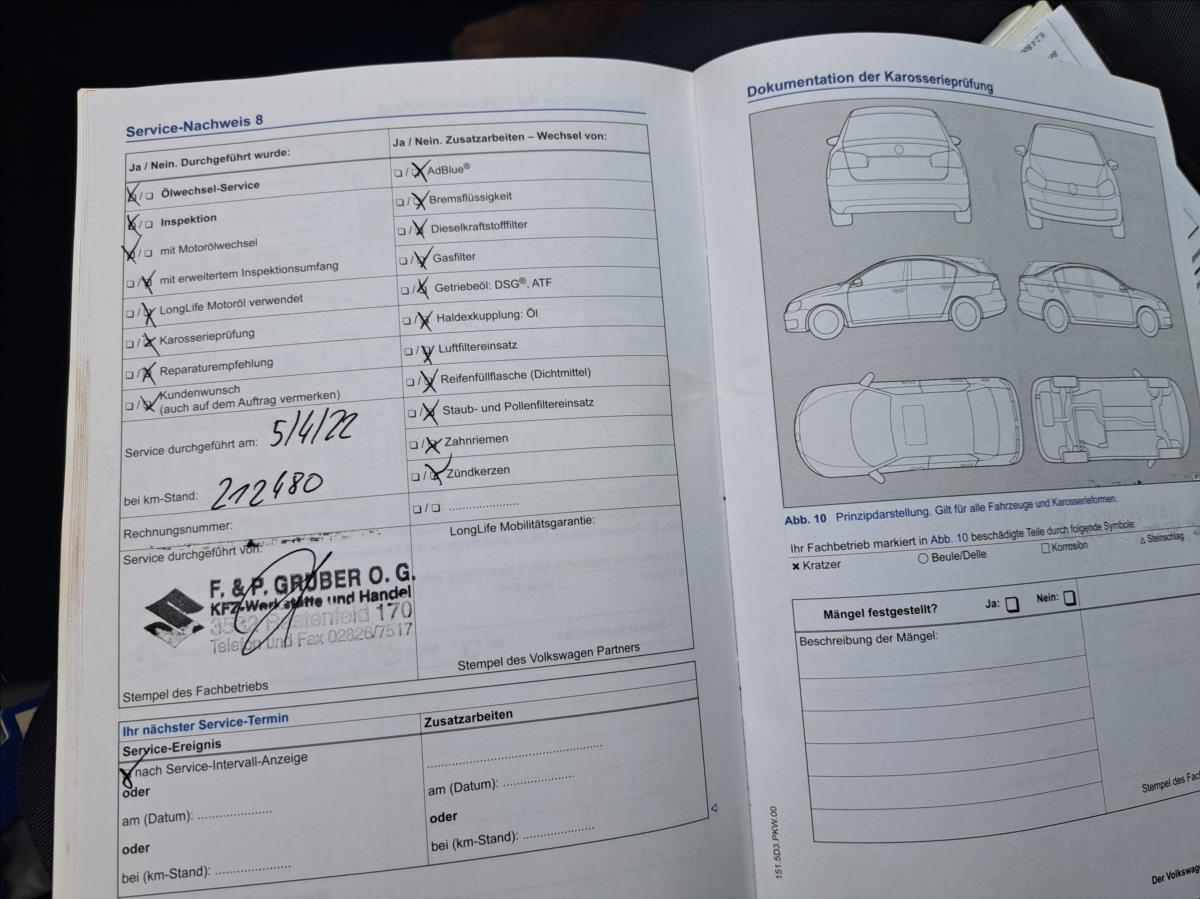 Service-Nachweis 8
Ja / Nein. Durchgeführt wurde:
Ölwechsel-Service
Inspektion
mit Motorölwechsel
mit erweitertem Inspektionsumfang
LongLife Motoröl verwendet
Karosserieprüfung
Reparaturempfehlung
Kundenwunsch
(auch auf dem Auftrag vermerken)
Service durchgeführt am: 5/4/22
bei km-Stand: 212480
Rechnungsnummer:
Service durchgeführt von:
F. & P. GRUBER O. G.
KFZ-Werkstätte und Handel
3532 Rastenfeld 170
Telefon und Fax 02826/7517
Stempel des Fachbetriebs
Ja / Nein. Zusatzarbeiten – Wechsel von:
AdBlue®
Bremsflüssigkeit
Dieselkraftstofffilter
Gasfilter
Getriebeöl: DSG®, ATF
Haldexkupplung: Öl
Luftfiltereinsatz
Reifenfüllflasche (Dichtmittel)
Staub- und Pollenfiltereinsatz
Zahnriemen
Zündkerzen
LongLife Mobilitätsgarantie:
Stempel des Volkswagen Partners
Ihr nächster Service-Termin
Service-Ereignis
nach Service-Intervall-Anzeige
oder
am (Datum): ....................
oder
bei (km-Stand): ....................
Zusatzarbeiten
am (Datum): ....................
oder
bei (km-Stand): ....................
Dokumentation der Karosserieprüfung
Abb. 10 Prinzipdarstellung. Gilt für alle Fahrzeuge und Karosserieformen.
Ihr Fachbetrieb markiert in Abb. 10 beschädigte Teile durch folgende Symbole:
× Kratzer ○ Beule/Delle □ Korrosion △ Steinschlag
Mängel festgestellt? Ja: Nein:
Beschreibung der Mängel:
Stempel des Fac
151.5D3.PKW.00
Der Volkswage